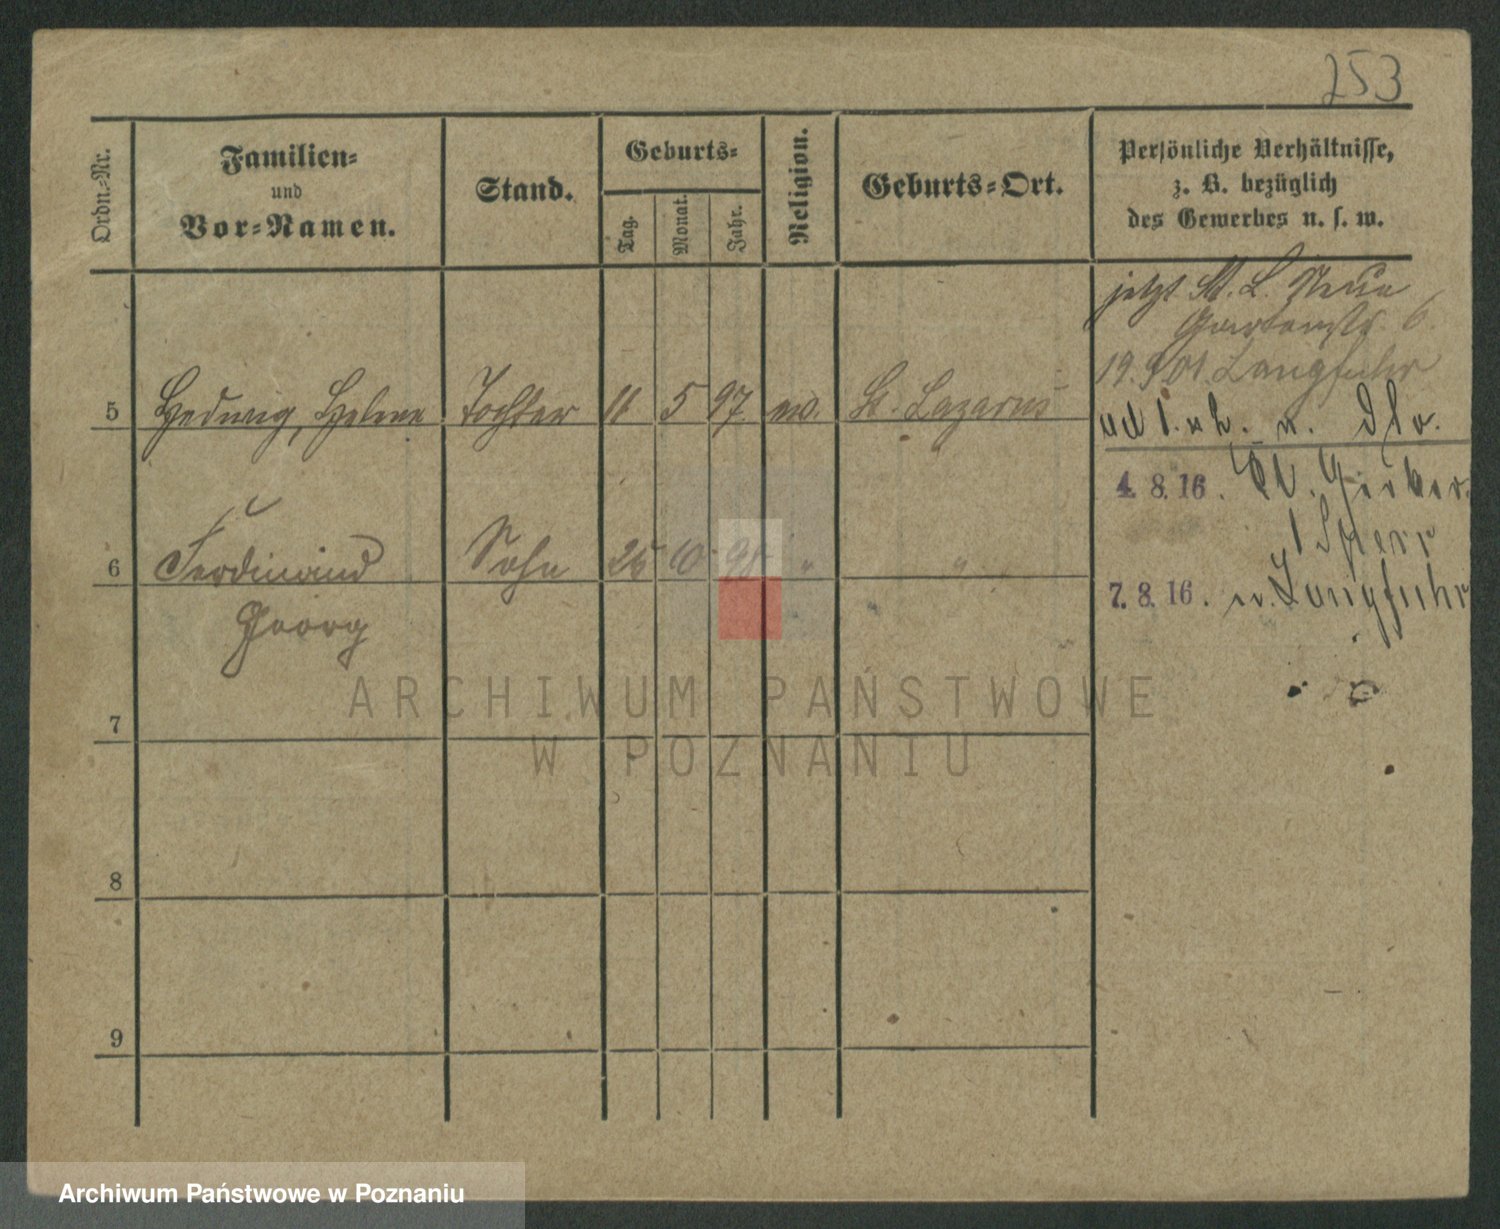 253
Ordn.-Nr.
Familien-
und
Vor-Namen.
Stand.
Geburts-
Tag.
Monat.
Jahr.
Religion.
Geburts-Ort.
Persönliche Verhältnisse,
z. B. bezüglich
des Gewerbes u. s. w.
jetzt St. L. Neue
Gartenstr. 6.
19. 9 01. Langfuhr
5 Hedwig, Helene Tochter 11 5 97 ev. St. Lazarus
4. 8. 16.
6 Ferdinand Sohn 25 10 98 "  "
Georg
7. 8. 16. n. Langfuhr
7
8
9
ARCHIWUM PAŃSTWOWE
W POZNANIU
Archiwum Państwowe w Poznaniu